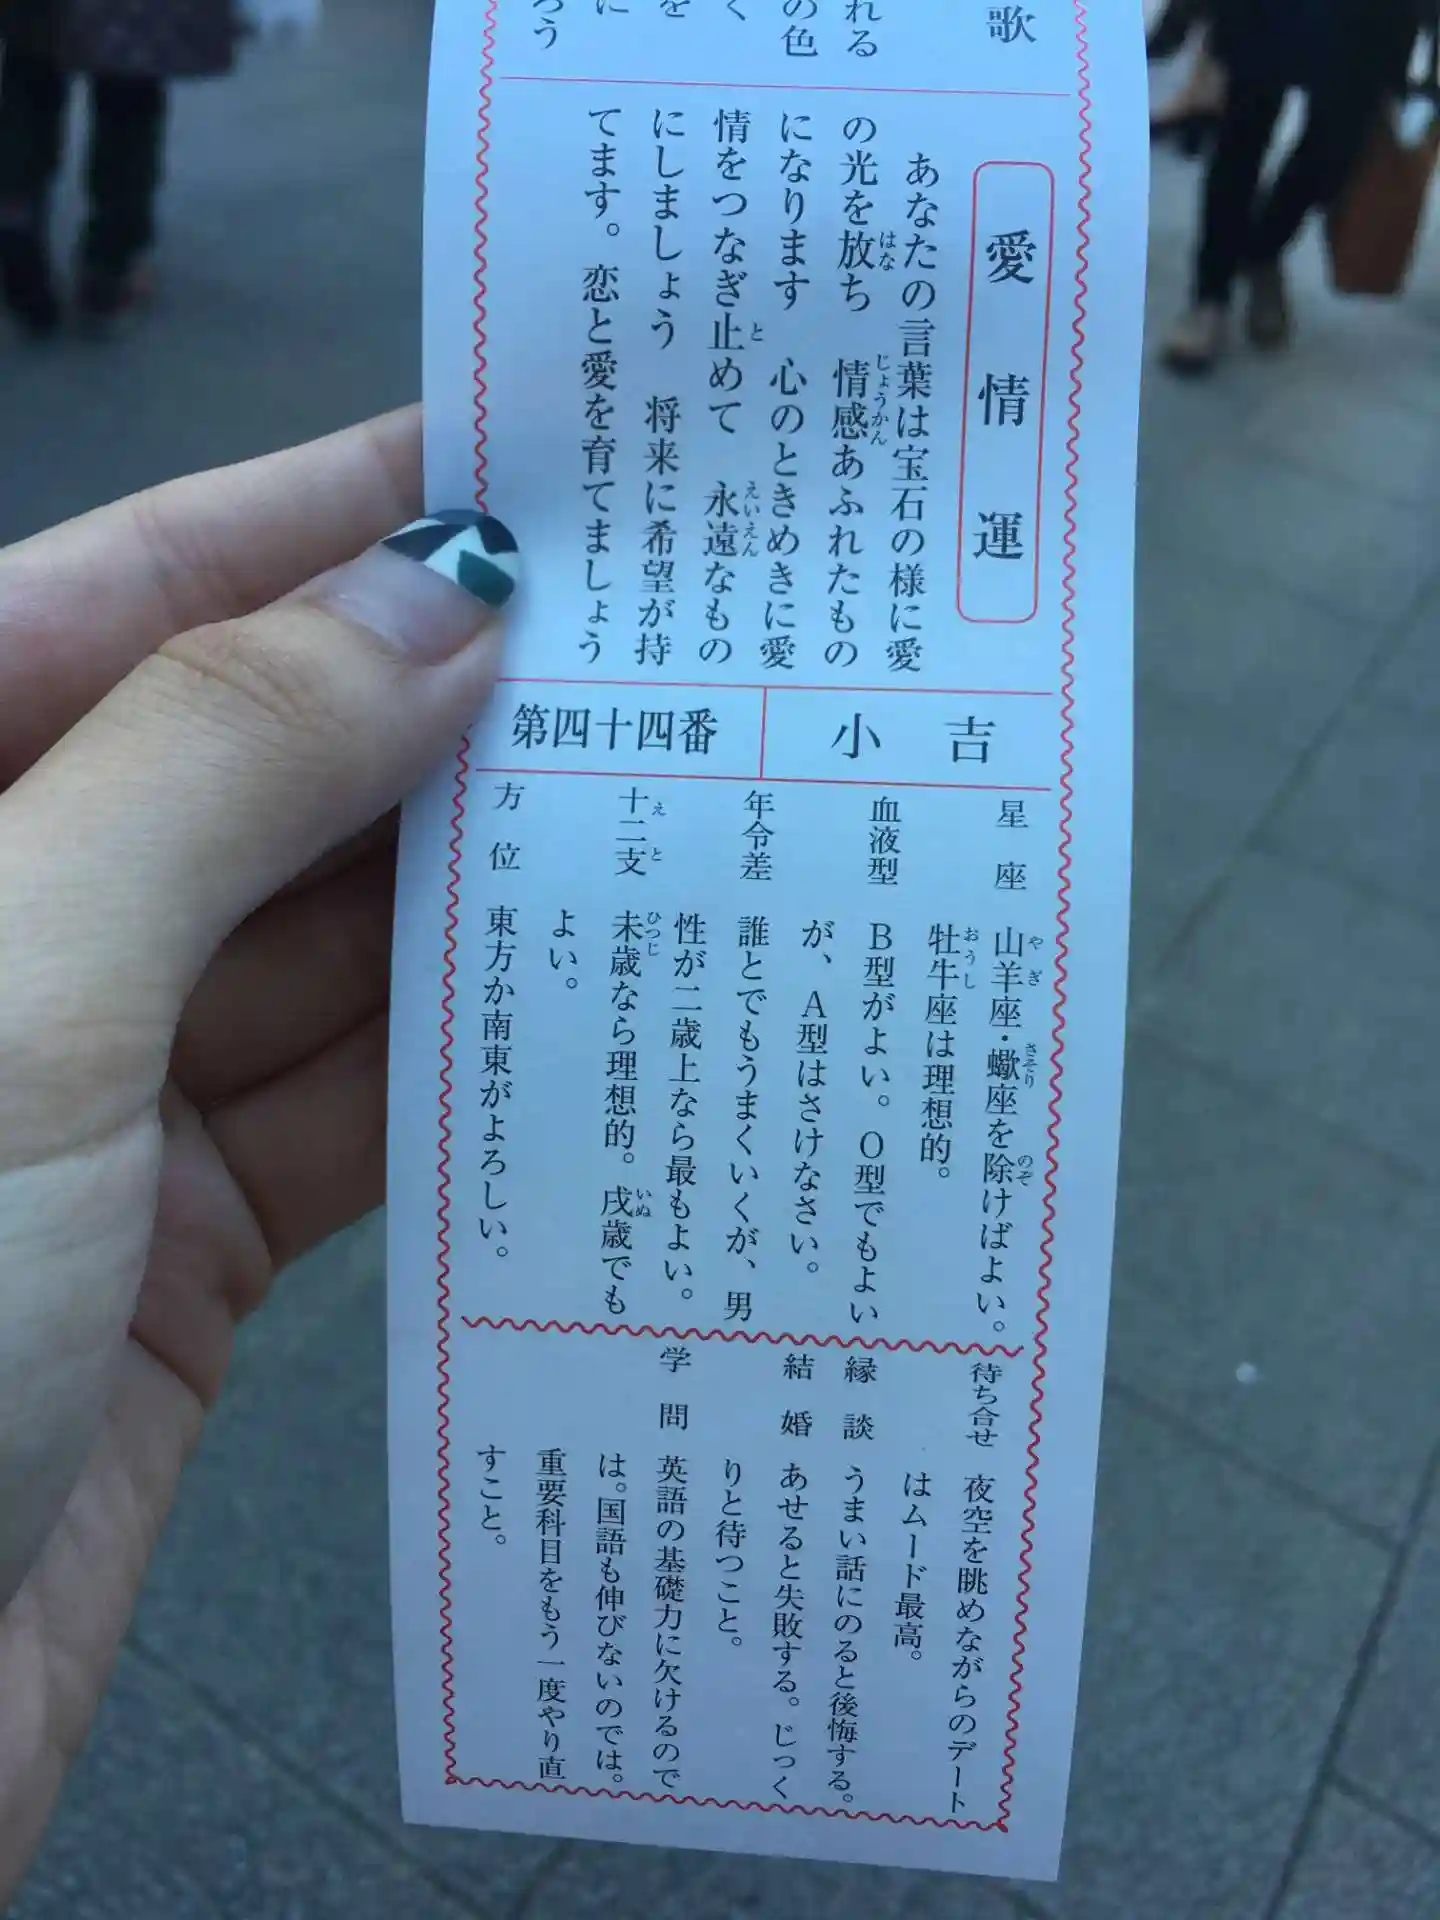 歌
れる
の色
く
を
に
ろう
愛情運
あなたの言葉は宝石の様に愛
の光を放ち　情感あふれたもの
になります　心のときめきに愛
情をつなぎ止めて　永遠なもの
にしましょう　将来に希望が持
てます。恋と愛を育てましょう
小吉
第四十四番
星座　山羊座・蠍座を除けばよい。
牡牛座は理想的。
血液型　B型がよい。O型でもよい
が、A型はさけなさい。
年令差　誰とでもうまくいくが、男
性が二歳上なら最もよい。
十二支　未歳なら理想的。戌歳でも
よい。
方位　東方か南東がよろしい。
待ち合せ　夜空を眺めながらのデート
はムード最高。
縁談　うまい話にのると後悔する。
結婚　あせると失敗する。じっく
りと待つこと。
学問　英語の基礎力に欠けるので
は。国語も伸びないのでは。
重要科目をもう一度やり直
すこと。